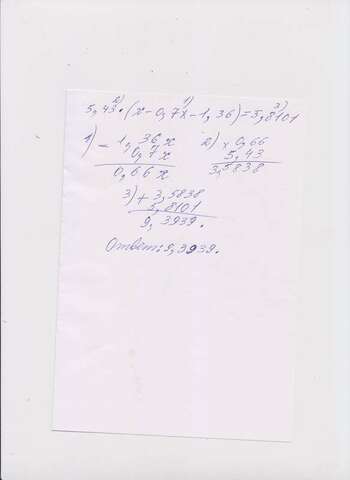 5,43·(x-0,7x-1,36)=5,8101
2) 1) 3)
1) - 1,36x
0,7x
0,66x
2) x 0,66
5,43
3,5838
3) + 3,5838
5,8101
9,3939.
Ответ: 9,3939.